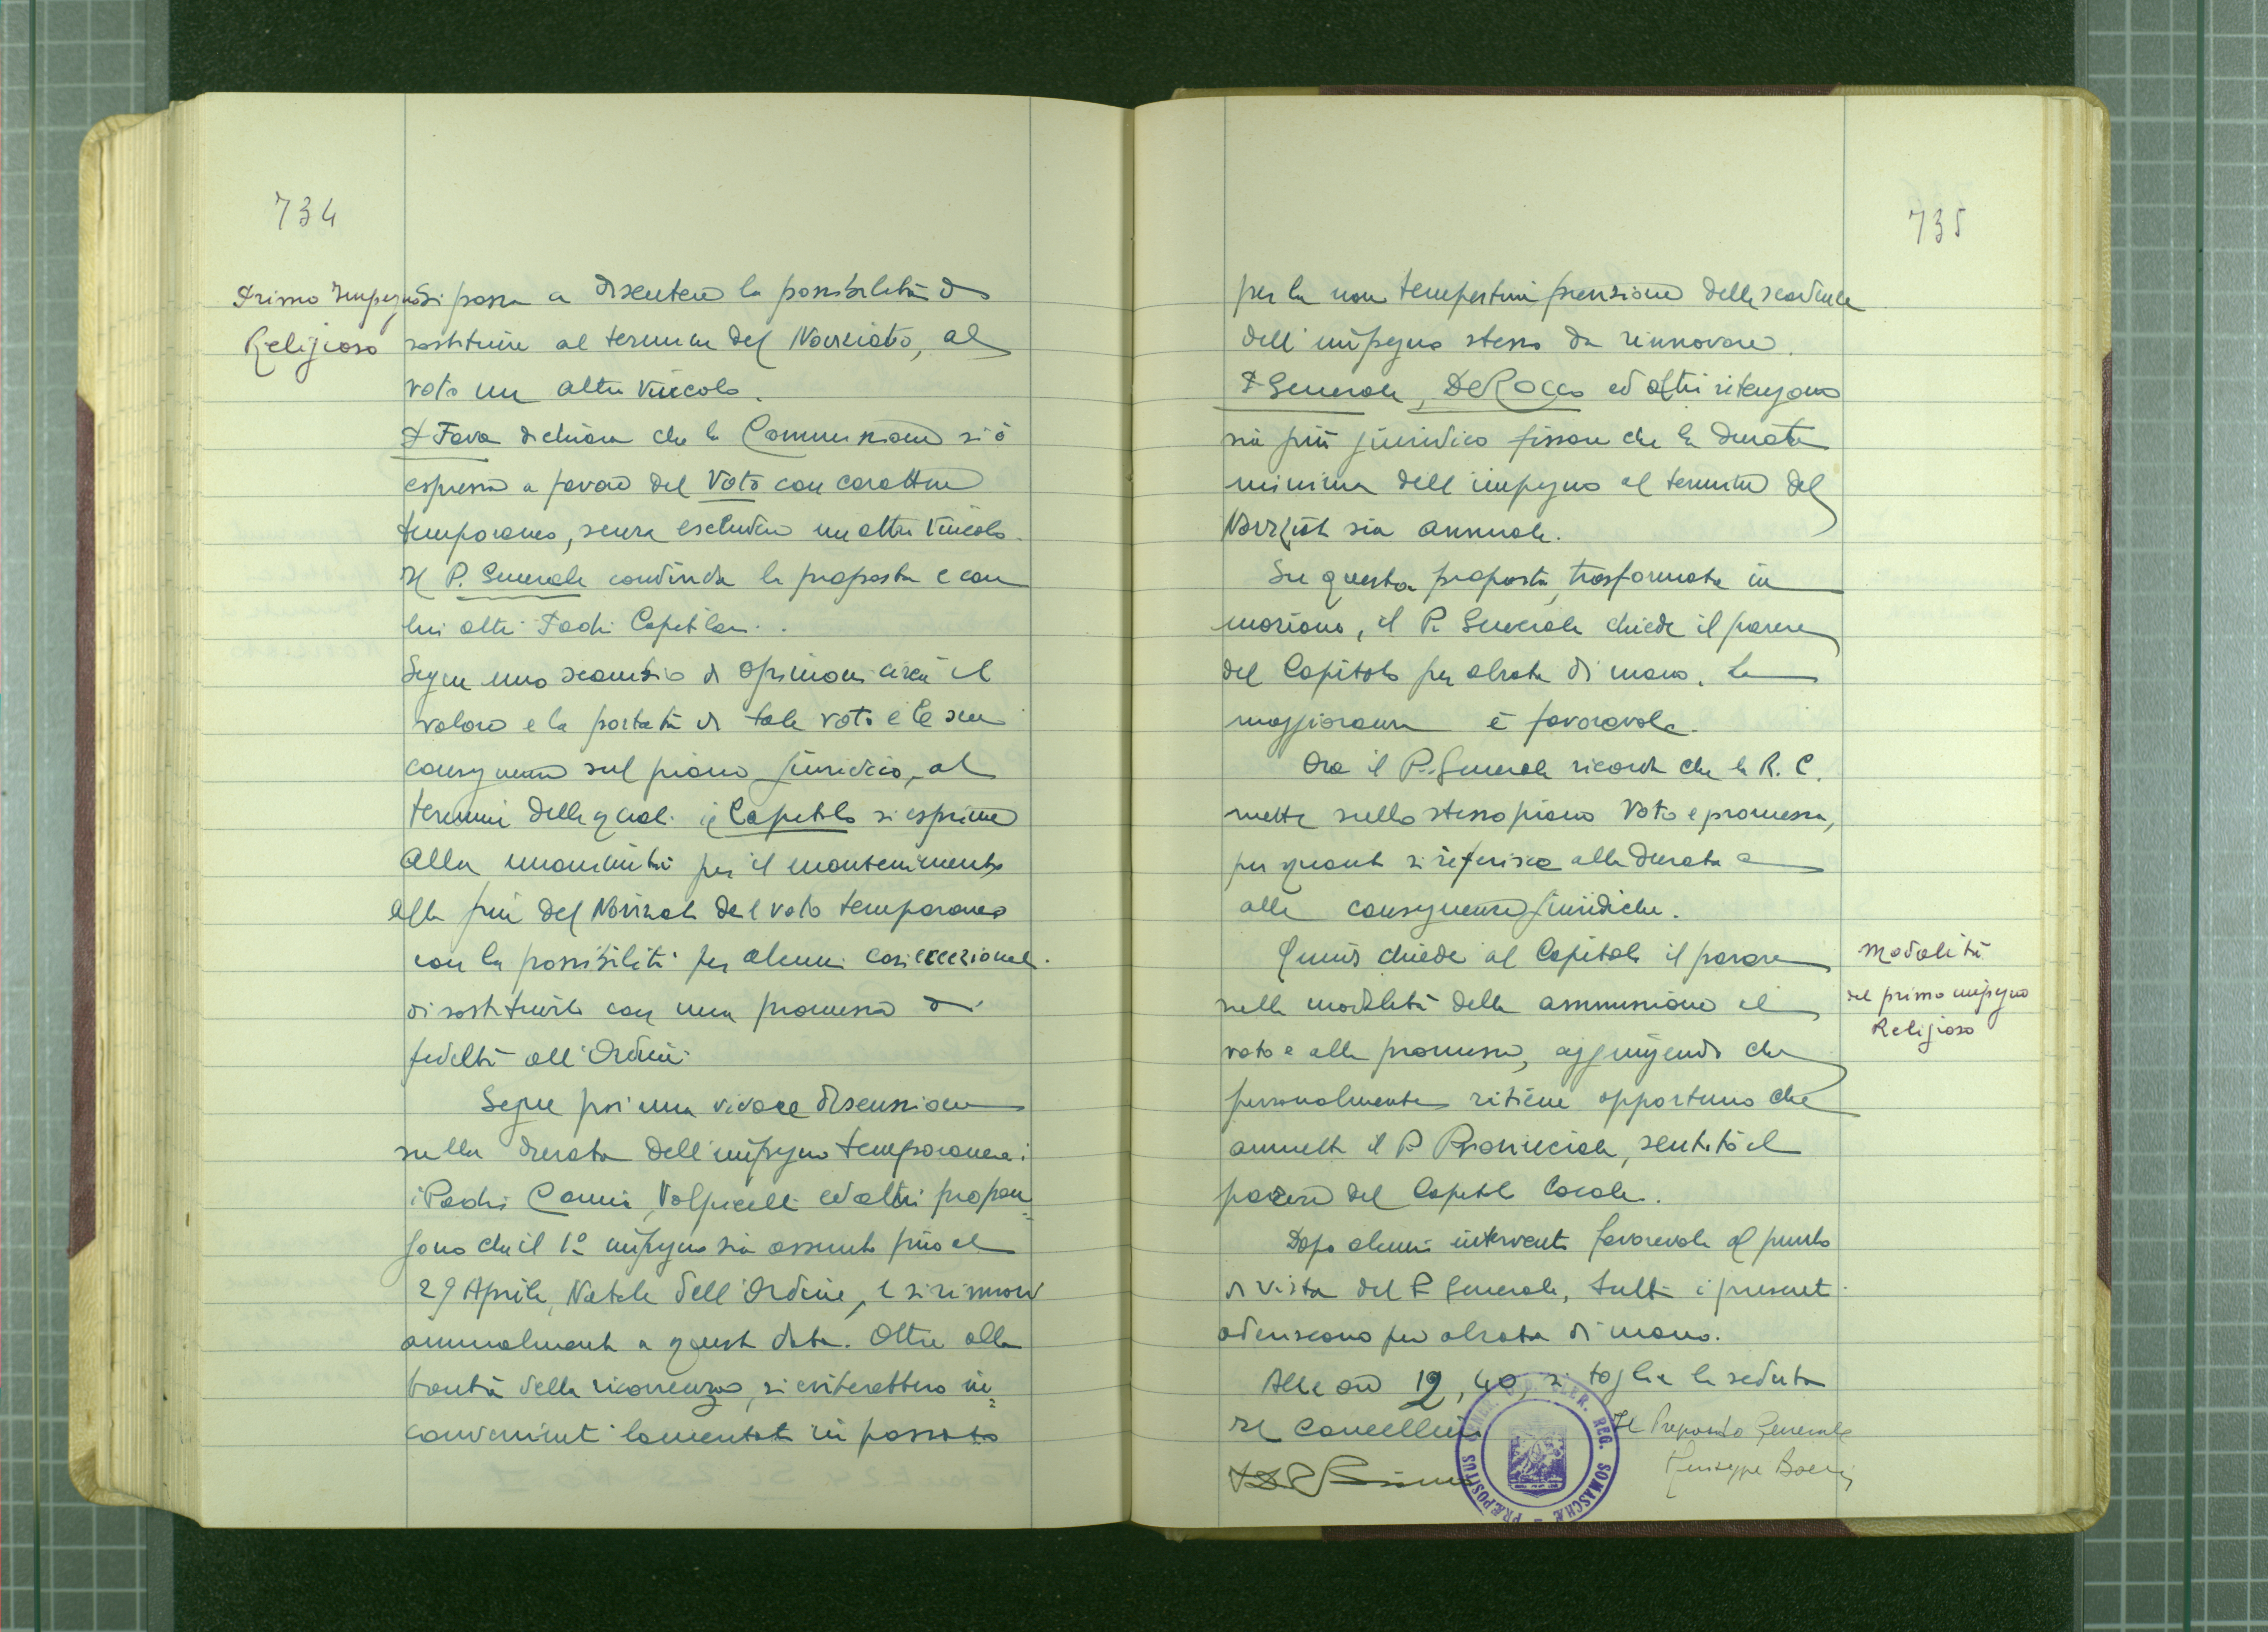 734
Primo Impegno
Religioso
Si passa a discutere la possibilità di
sostituire al termine del Noviziato, al
voto un altro vincolo.
P. Fava dichiara che la Commissione si è
espressa a favore del Voto con carattere
temporaneo, senza escludere un altro vincolo.
Il P. Generale condivide la proposta e con
lui altri Padri Capitolari.
Segue uno scambio di opinioni circa il
valore e la portata di tale voto e le sue
conseguenze sul piano giuridico, al
termine delle quali il Capitolo si esprime
alla unanimità per il mantenimento
alla fine del Noviziato del voto temporaneo
con la possibilità per alcuni casi eccezionali
di sostituirlo con una promessa di
fedeltà all'Ordine.
Segue poi una vivace discussione
sulla durata dell'impegno temporaneo:
i Padri Camia, Volpicelli ed altri propon=
gono che il 1° impegno sia assunto fino al
29 Aprile, Natale dell'Ordine, e si rinnovi
annualmente a questa data. Oltre alla
bontà della ricorrenza, si eviterebbero in=
convenienti lamentati in passato
735
per la non tempestiva previsione della scadenza
dell'impegno stesso da rinnovare.
P. Generale, De Rocco ed altri ritengono
sia più giuridico fissare che la durata
minima dell'impegno al termine del
Noviziato sia annuale.
Su questa proposta, trasformata in
mozione, il P. Generale chiede il parere
del Capitolo per alzata di mano. La
maggioranza è favorevole.
Ora il P. Generale ricorda che la R. C.
mette sullo stesso piano Voto e promessa,
per quanto si riferisce alla durata e
alle conseguenze giuridiche.
Quindi chiede al Capitolo il parere
sulle modalità della ammissione al
voto e alla promessa, aggiungendo che
personalmente ritiene opportuno che
ammetta il P. Provinciale, sentito il
parere del Capitolo locale.
Modalità
del primo impegno
Religioso
Dopo alcuni interventi favorevoli al punto
di vista del P. Generale, tutti i presenti
aderiscono per alzata di mano.
Alle ore 12,40, si toglie la seduta
Il Cancelliere
Il Preposito Generale
Giuseppe Boeris
PRÆPOSITUS GENER. CLER. REG. SOMASCHÆ